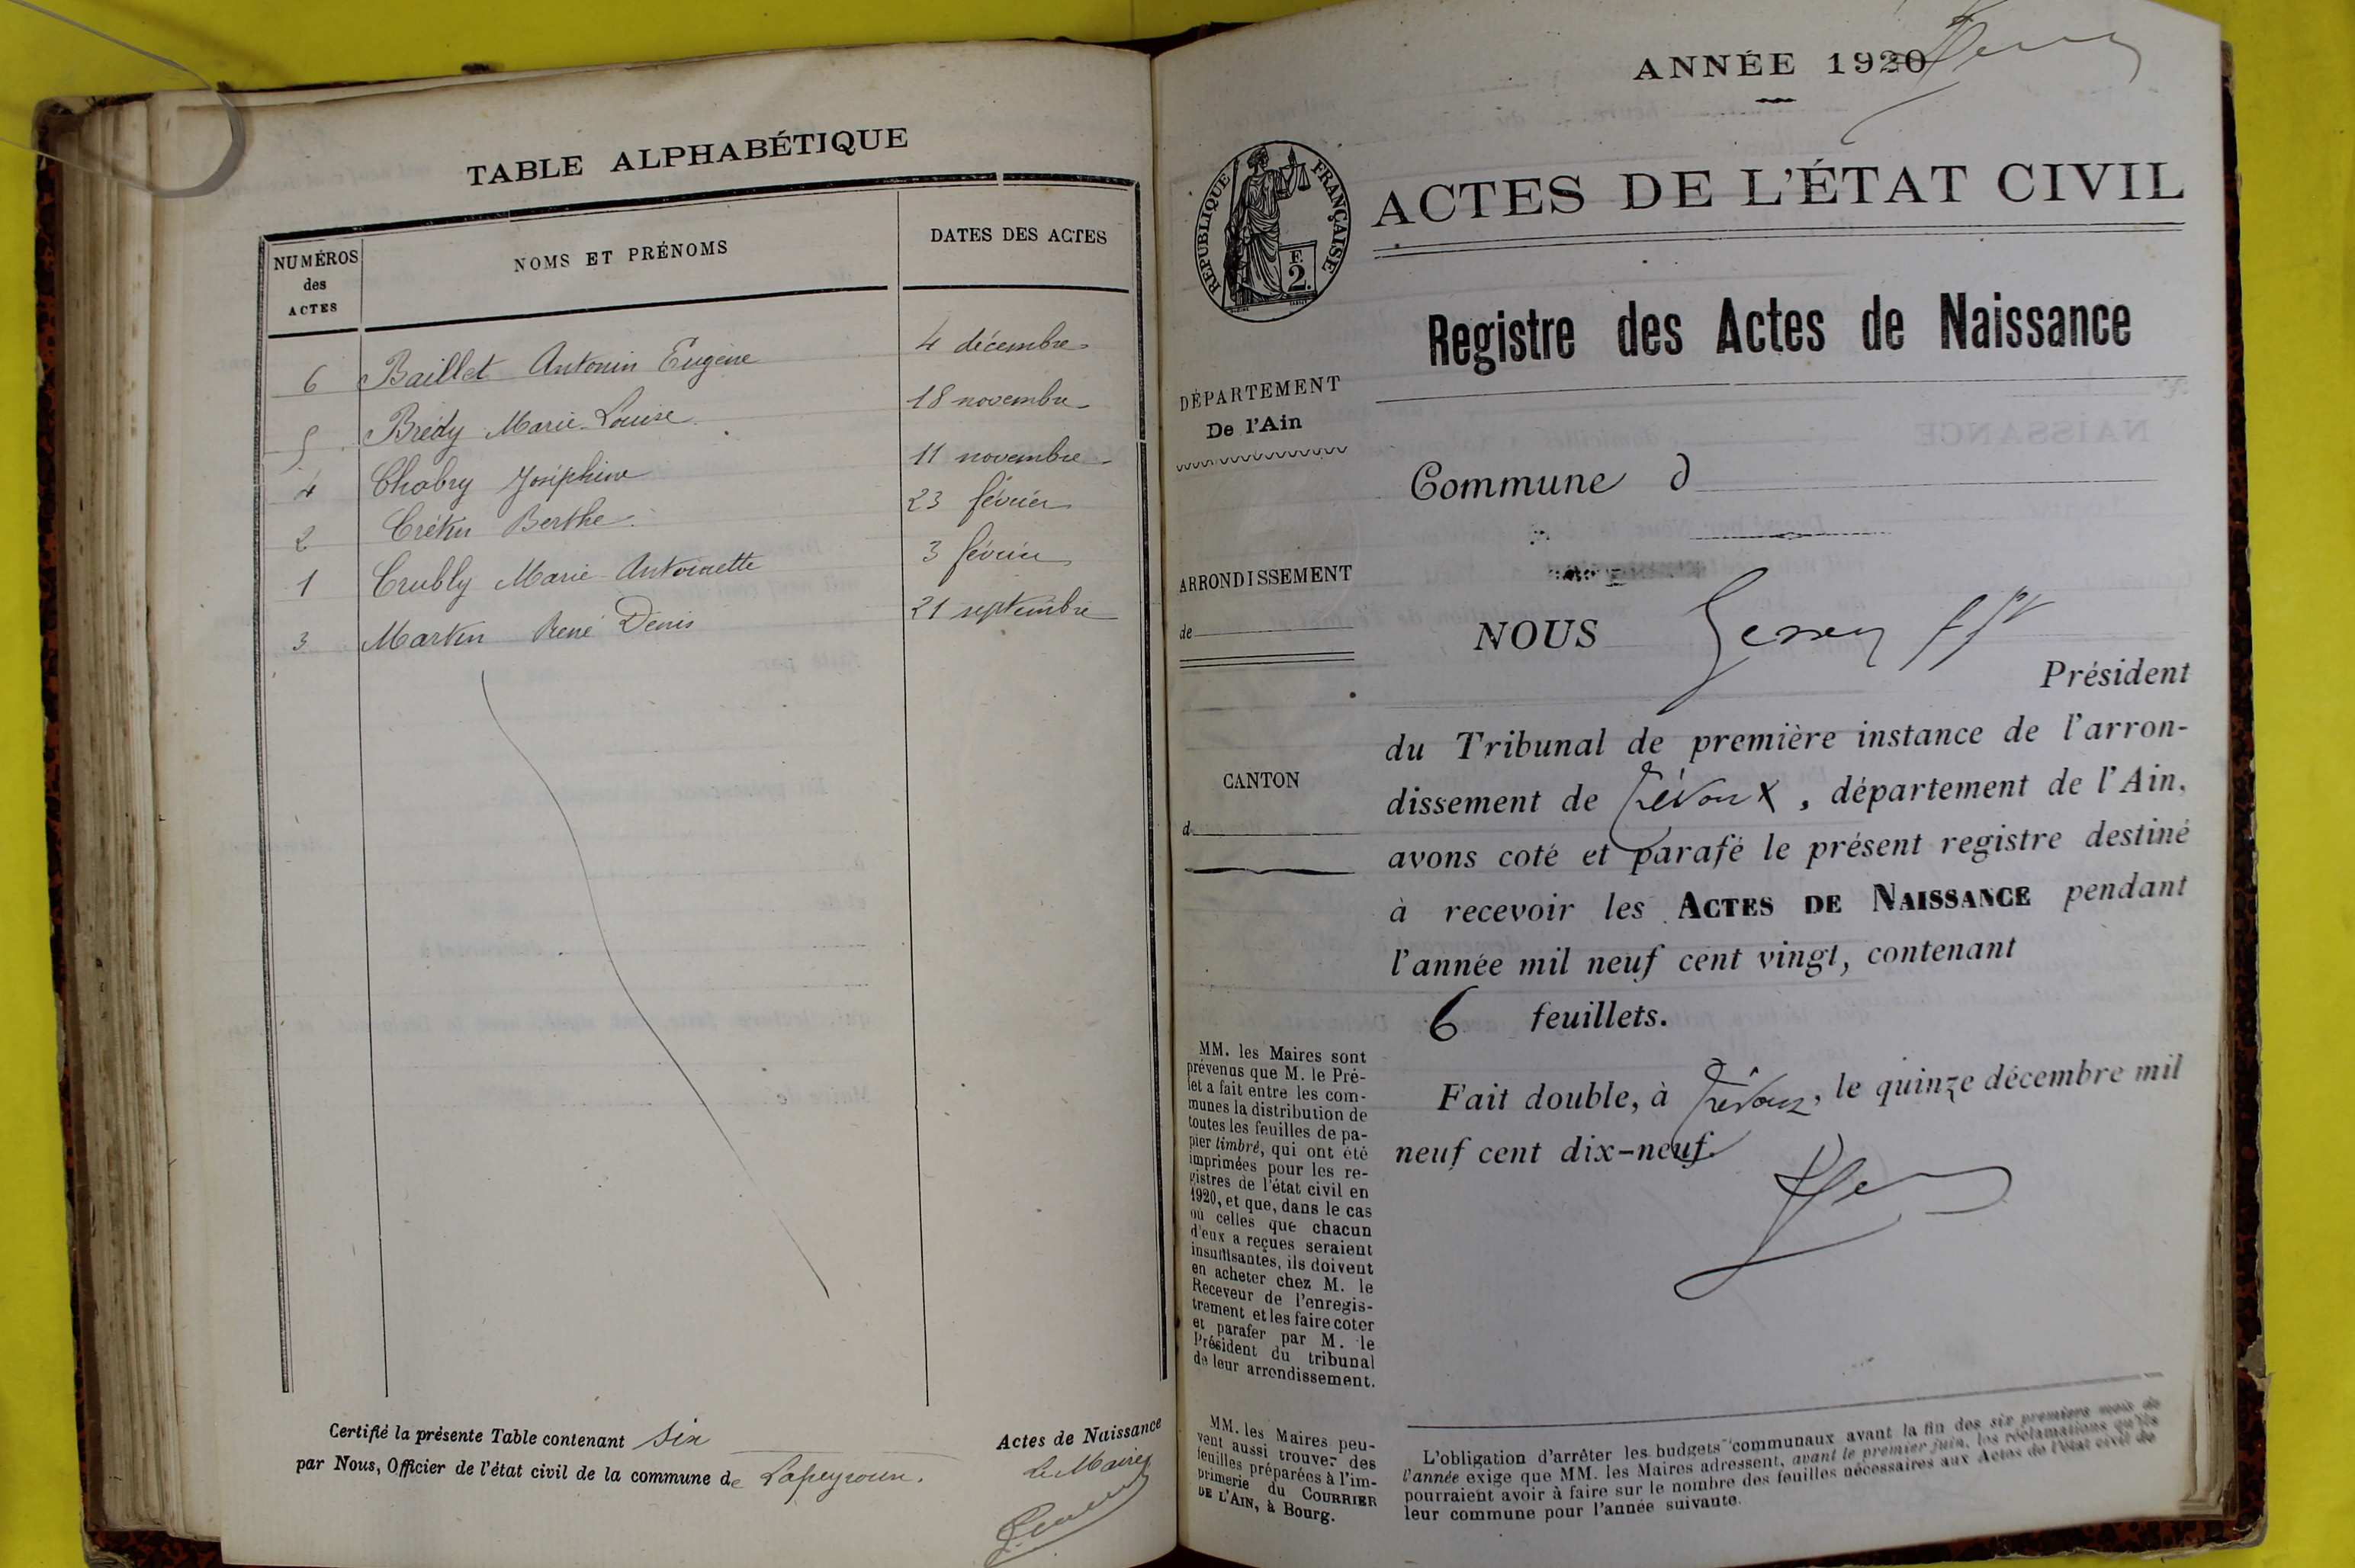 TABLE ALPHABÉTIQUE
NUMÉROS
des
ACTES
NOMS ET PRÉNOMS
DATES DES ACTES
6 Baillet Antonin Eugène 4 décembre
5 Brédy Marie-Louise 18 novembre
4 Chabry Joséphine 11 novembre
2 Crétin Berthe 23 février
1 Crubly Marie Antoinette 3 février
3 Martin René Denis 21 septembre
Certifié la présente Table contenant six Actes de Naissance
par Nous, Officier de l'état civil de la commune de Lapeyrouse. Le Maire,
ANNÉE 1920
RÉPUBLIQUE FRANÇAISE
F.
2.
ACTES DE L'ÉTAT CIVIL
Registre des Actes de Naissance
DÉPARTEMENT
De l'Ain
Commune d
ARRONDISSEMENT
de
NOUS
Président
CANTON
d
du Tribunal de première instance de l'arron-
dissement de Trévoux, département de l'Ain,
avons coté et parafé le présent registre destiné
à recevoir les ACTES DE NAISSANCE pendant
l'année mil neuf cent vingt, contenant
6 feuillets.
Fait double, à Trévoux, le quinze décembre mil
neuf cent dix-neuf.
MM. les Maires sont
prévenus que M. le Pré-
fet a fait entre les com-
munes la distribution de
toutes les feuilles de pa-
pier timbré, qui ont été
imprimées pour les re-
gistres de l'état civil en
1920, et que, dans le cas
où celles que chacun
d'eux a reçues seraient
insuffisantes, ils doivent
en acheter chez M. le
Receveur de l'enregis-
trement et les faire coter
et parafer par M. le
Président du tribunal
de leur arrondissement.
MM. les Maires peu-
vent aussi trouver des
feuilles préparées à l'im-
primerie du COURRIER
DE L'AIN, à Bourg.
L'obligation d'arrêter les budgets communaux avant la fin des six premiers mois de
l'année exige que MM. les Maires adressent, avant le premier juin, les réclamations qu'ils
pourraient avoir à faire sur le nombre des feuilles nécessaires aux Actes de l'état civil de
leur commune pour l'année suivante.